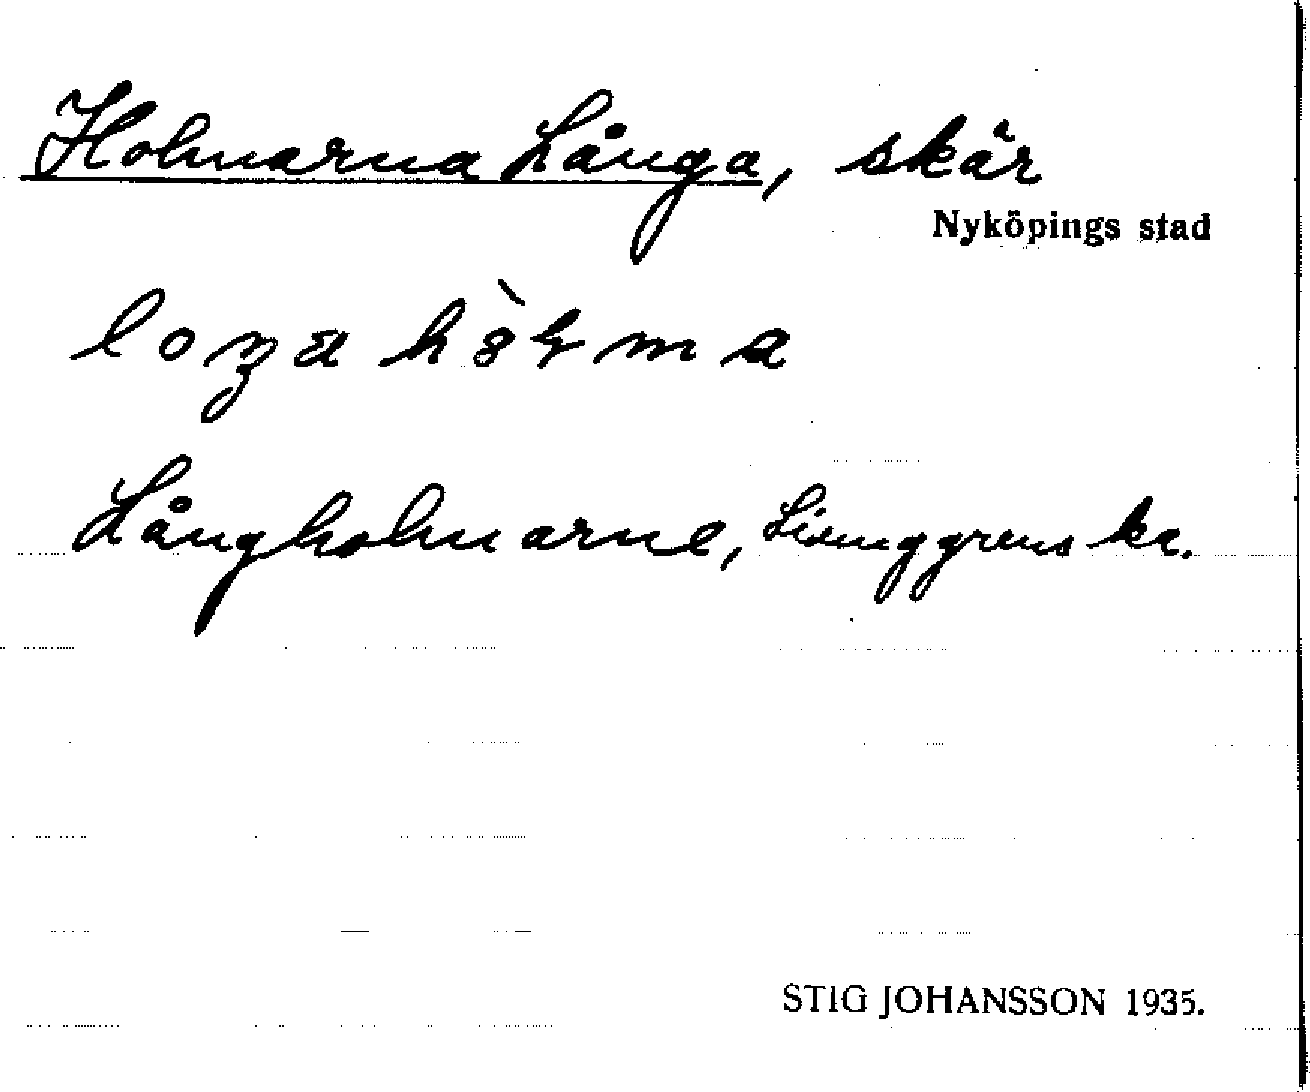 Holmarna Långa, skär
Nyköpings stad
Långholmarne, Ljunggrens ka.
STIG JOHANSSON 1935.